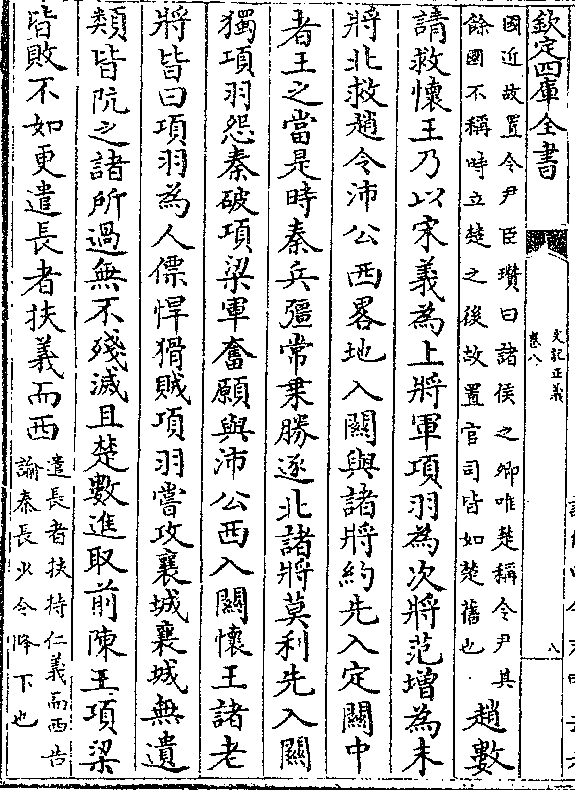 欽定四庫全書
史記正義
卷八
八
國近故置令尹臣瓚曰諸侯之卿唯楚稱令尹其
餘國不稱時立楚之後故置官司皆如楚舊也
趙數
請救懷王乃以宋義為上將軍項羽為次將范增為末
將北救趙令沛公西畧地入關與諸將約先入定關中
者王之當是時秦兵彊常乗勝逐北諸將莫利先入關
獨項羽怨秦破項梁軍奮願與沛公西入關懷王諸老
將皆曰項羽為人僄悍猾賊項羽嘗攻襄城襄城無遺
類皆阬之諸所過無不殘滅且楚數進取前陳王項梁
皆敗不如更遣長者扶義而西
遣長者扶持仁義而西告
諭秦長少令降下也